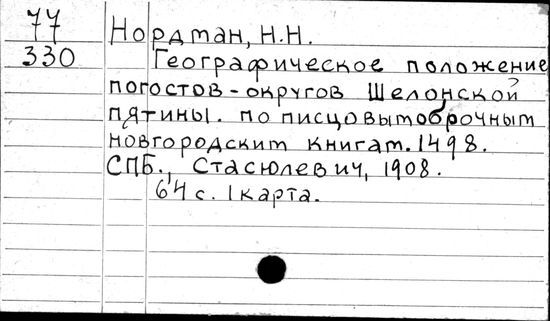 77 Нордман, Н.Н.
330 Географическое положение
погостов-округов Шелонской
пятины. по писцовымоброчным
новгородским книгам. 1498.
СПБ., Стасюлевич, 1908.
64 с. 1 карта.